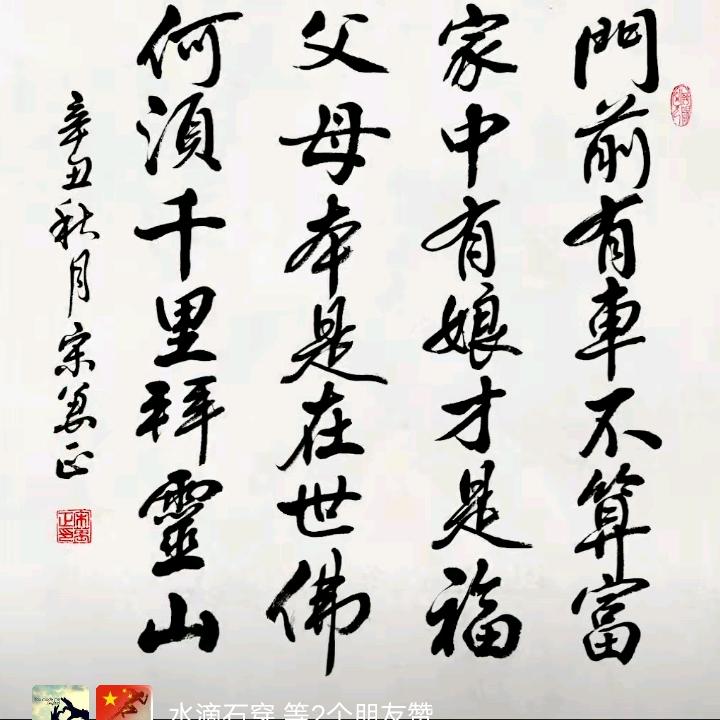 門前有車不算富
家中有娘才是福
父母本是在世佛
何須千里拜靈山
辛丑秋月宋萬正
水滴石穿 等2个朋友赞